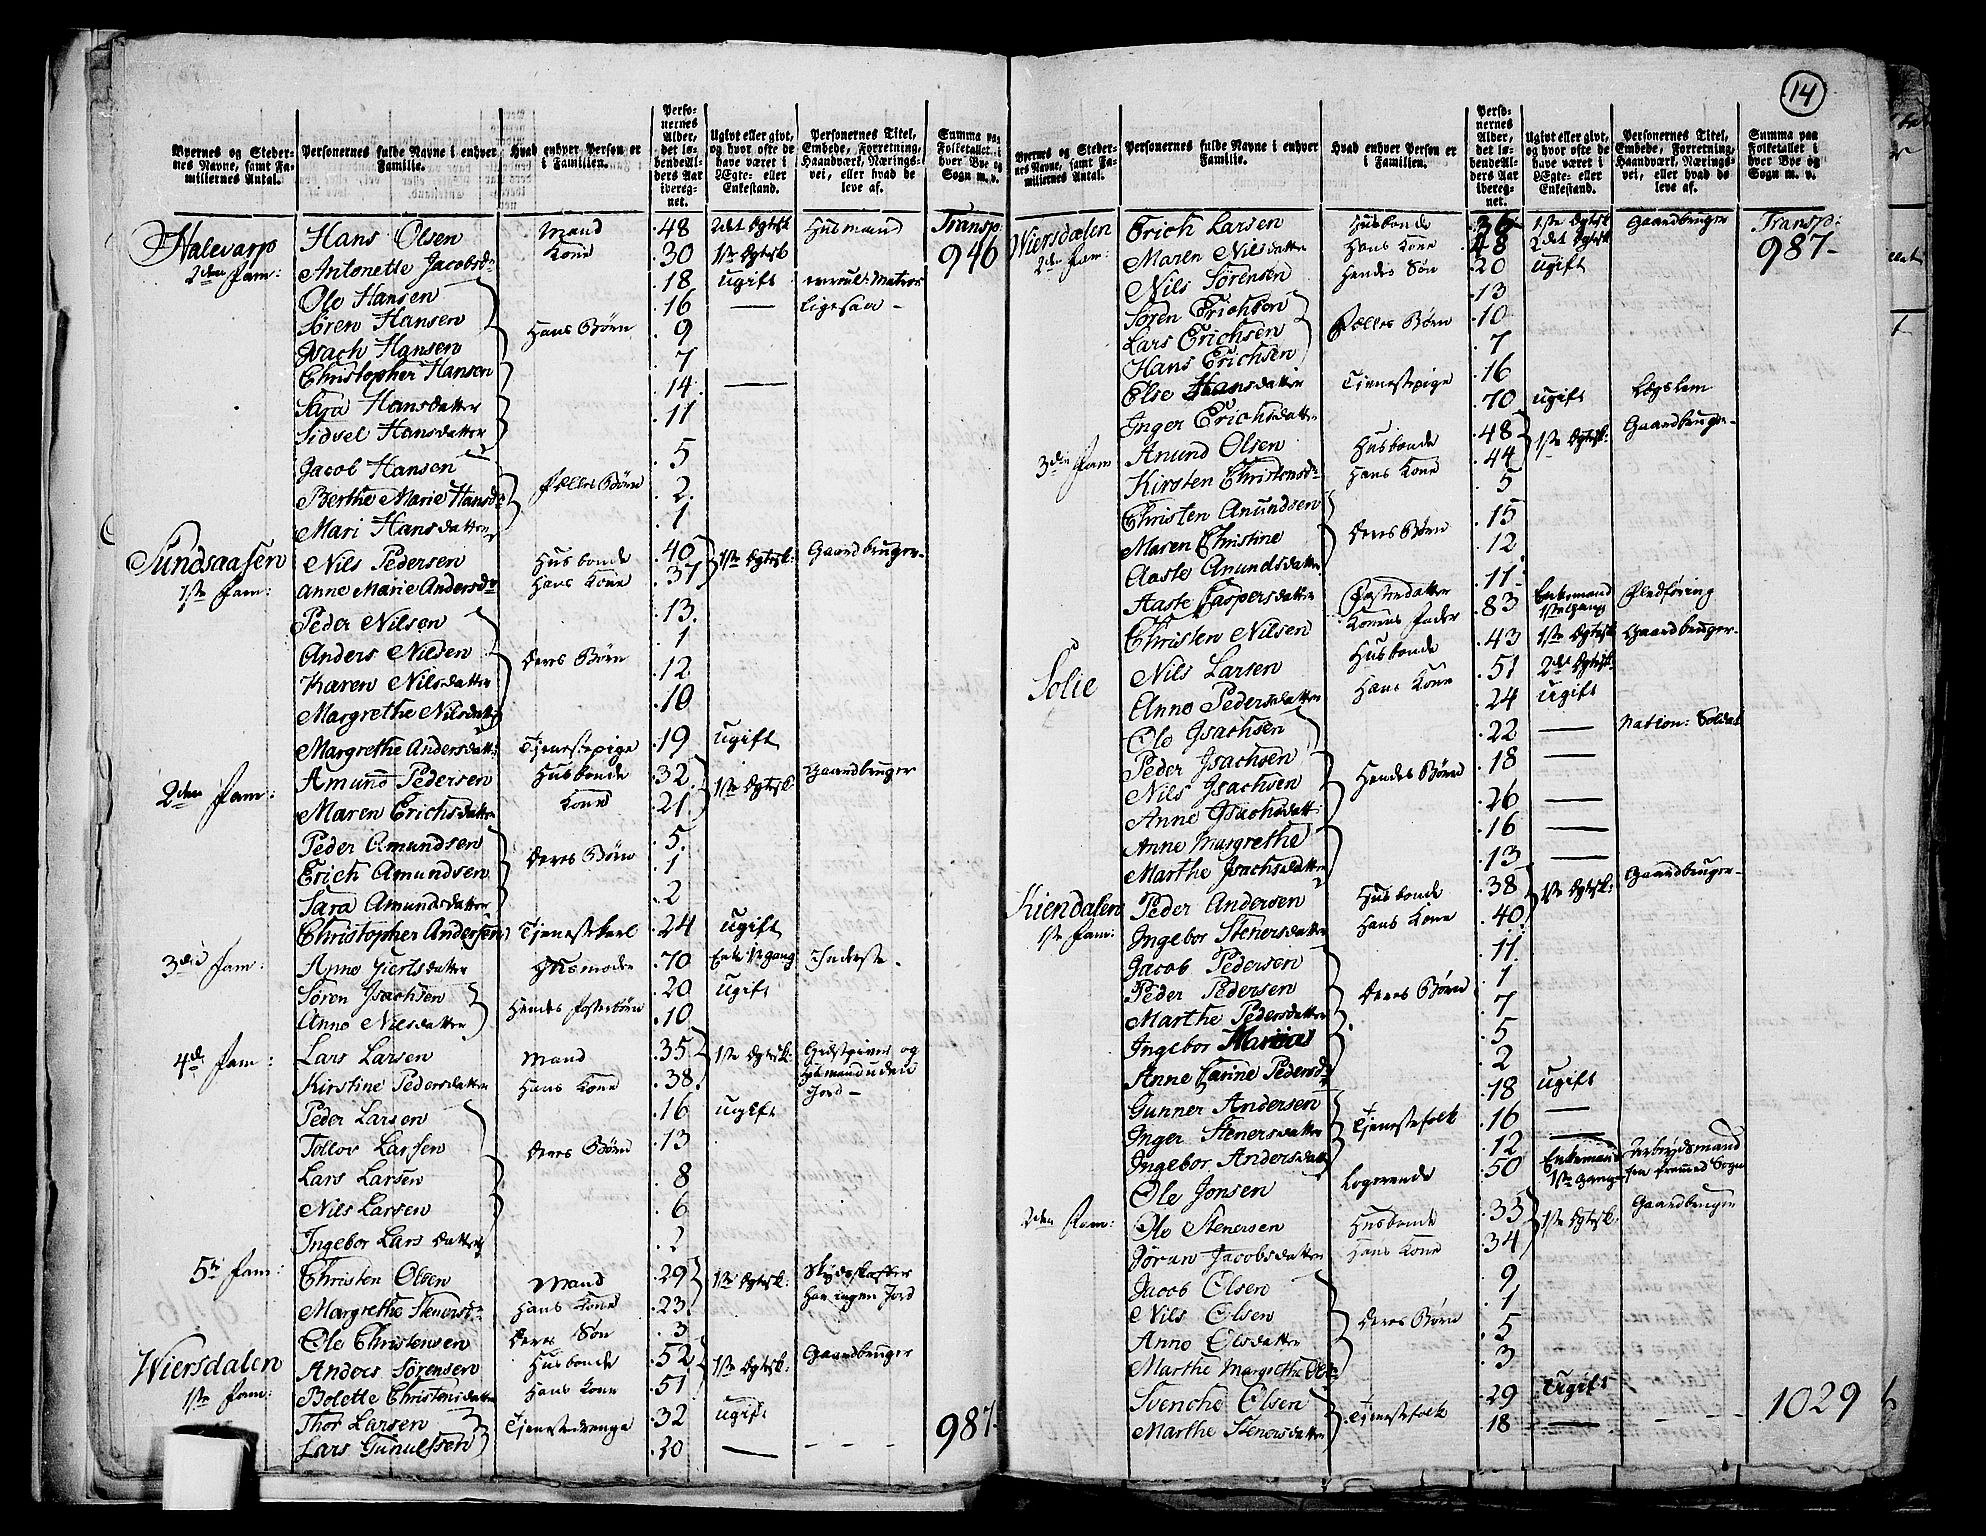 14
Byernes og Stedernes Navne, samt Familiernes Antal.
Personernes fulde Navne i enhver Familie.
Hvad enhver Person er i Familien.
Personernes Alder, det løbende Alders Aar iberegnet.
Ugivt eller givt, og hvor ofte de have været i Ægte- eller Enkestand.
Personernes Titel, Embede, Forretning, Haandværk, Næringsvei, eller hvad de leve af.
Summa paa Folketallet i hver Bye og Sogn m. v.
Nalevarp Hans Olsen Mand 48 2det Egtesk Husmand Transp:
2den Fam: Antonette Jacobsdr Kone 30 1ste Egtesk 946
Ole Hansen 18 ugift Matros
Søren Hansen 16 — ligesaa
Isach Hansen Hans Børn 9
Christopher Hansen 7
Sara Hansdatter 14 —
Sidsel Hansdatter 11
Jacob Hansen 5
Berthe Marie Hansdr Fælles Børn 2
Mari Hansdatter 1
Sundsaasen Nils Pedersen Husbonde 40 1ste Egtesk: Gaardbruger
1ste Fam: Anne Marie Andersdr Hans Kone 37
Peder Nilsen 13
Anders Nilsen 1
Karen Nilsdatter Deres Børn 12
Margrethe Nilsdatter 10
Margrethe Andersdatt: Tjenestepige 19 ugift
2den Fam: Amund Pedersen Husbonde 32 1ste Egtesk Gaardbruger
Maren Erichsdatter Kone 21
Peder Amundsen 5
Erich Amundsen Deres Børn 1
Sara Amundsdatter 2
Christopher Andersen Tjenestekarl 24 ugift
3die Fam: Anne Giertsdatter Husmoder 70 Enke 1ste gang Inderste
Søren Isachsen 20 ugift
Anne Nilsdatter Hendes Fosterbørn 10
4de Fam: Lars Larsen Mand 35 1ste Egtesk: Giestgiver og
Kirstine Pedersdatter Hans Kone 38 Husmand uden
Peder Larsen 16 ugift Jord
Tollov Larsen Deres Børn 13
Lars Larsen 8
Nils Larsen 6
Ingebor Larsdatter 2
5te Fam: Christen Olsen Mand 29 1ste Egtesk:
Margrethe Stenersdr Hans Kone 23 har ingen Jord
Ole Christensen Deres Søn 3
Wiersdalen Anders Sørensen Husbonde 52 1ste Egtesk: Gaardbruger
1ste Fam: Bolette Christensdatter Hans Kone 51
Thor Larsen Tjenestedrenge 32 ugift
Lars Gunulfsen 20 — 987
Byernes og Stedernes Navne, samt Familiernes Antal.
Personernes fulde Navne i enhver Familie.
Hvad enhver Person er i Familien.
Personernes Alder, det løbende Alders Aar iberegnet.
Ugivt eller givt, og hvor ofte de have været i Ægte- eller Enkestand.
Personernes Titel, Embede, Forretning, Haandværk, Næringsvei, eller hvad de leve af.
Summa paa Folketallet i hver Bye og Sogn m. v.
Wiersdalen Erich Larsen Husbonde 36 1ste Egtesk Gaardbruger Transp:
2den Fam: Maren Nilsdatter Hans Kone 48 2det Egtesk 987
Nils Sørensen Hendes Søn 20 ugift
Søren Erichsen 13
Lars Erichsen Fælles Børn 10
Hans Erichsen 7
Else Hansdatter Tjenestepige 16
Inger Erichsdatter 70 ugift Lægslem
3die Fam Anund Olsen Husbonde 48 1ste Egtesk: Gaardbruger
Kirsten Christensdr Hans Kone 44
Christen Anundsen 5
Maren Christine Deres Børn 15
Aaste Anundsdatter 12
Aaste Jaspersdatter Fosterdatter 11
Christen Nilsen Konens Fader 83 Enkemand 1ste gang Fledføring
Solie Nils Larsen Husbonde 43 1ste Egtesk Gaardbruger
Anne Pedersdatter Hans Kone 51 2det Egtesk
Ole Isachsen 24 ugift
Peder Isachsen 22 — Nation: Soldat
Nils Isachsen Hendes Børn 18 —
Anne Isachsdatt: 26 —
Anne Margrethe 16 —
Marthe Isachsdatter 13 —
Kiendalen Peder Andersen Husbonde 38 1ste Egtesk: Gaardbruger
1ste Fam: Ingebor Stenersdatter Hans Kone 40
Jacob Pedersen 11
Peder Pedersen 1
Marthe Pedersdatter Deres Børn 7
Ingebor Maria 5
Anne Carine Pedersdr 2
Gunner Andersen 18 ugift
Inger Stenersdatter Tjenestefolk 16 —
Ingebor Andersdatter 12 —
Ole Jonsen Logerende 50 Enkemand 1ste gang Arbeydsmand fra fremmed Sogn
2den Fam: Ole Stenersen Husbonde 33 1ste Egtesk: Gaardbruger
Jøran Jacobsdatter Hans Kone 34
Jacob Olsen 9
Nils Olsen Deres Børn 1
Anne Olsdatter 5
Marthe Margrethe 3
Svenche Olsen 29 ugift
Marthe Stenersdatter Tjenestefolk 18 — 1029